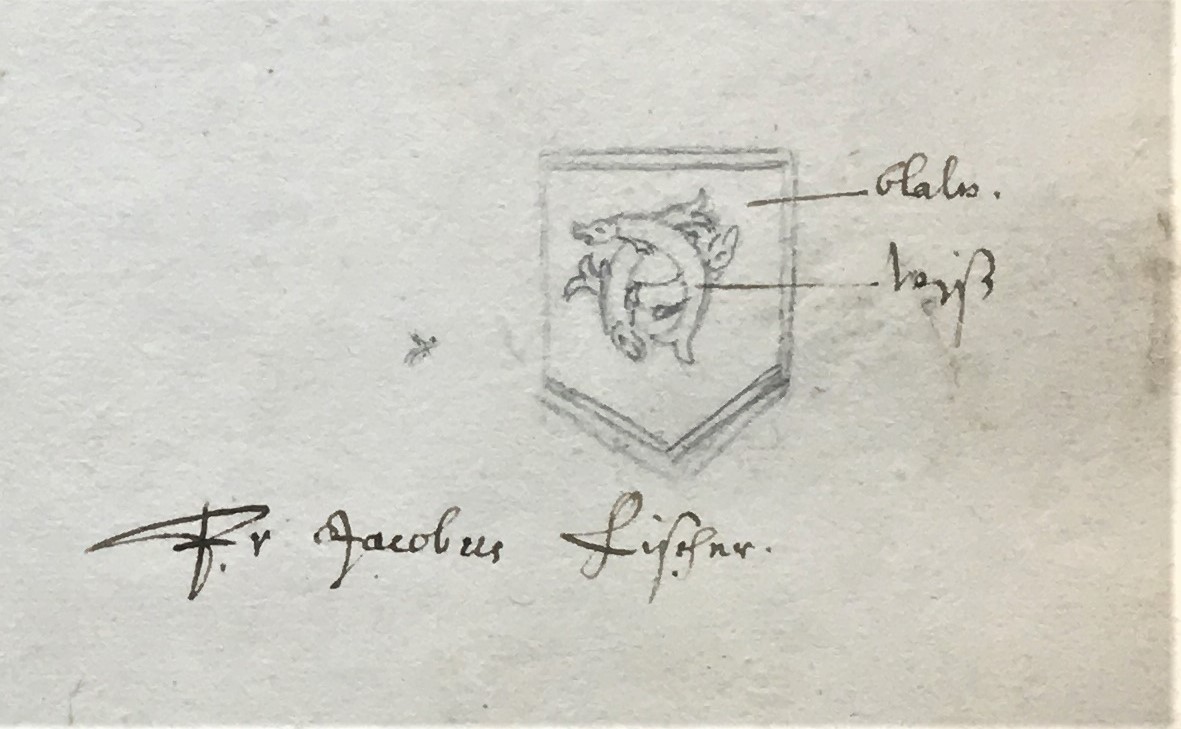 blaw.
weiß
Fr Jacobus Fischer.